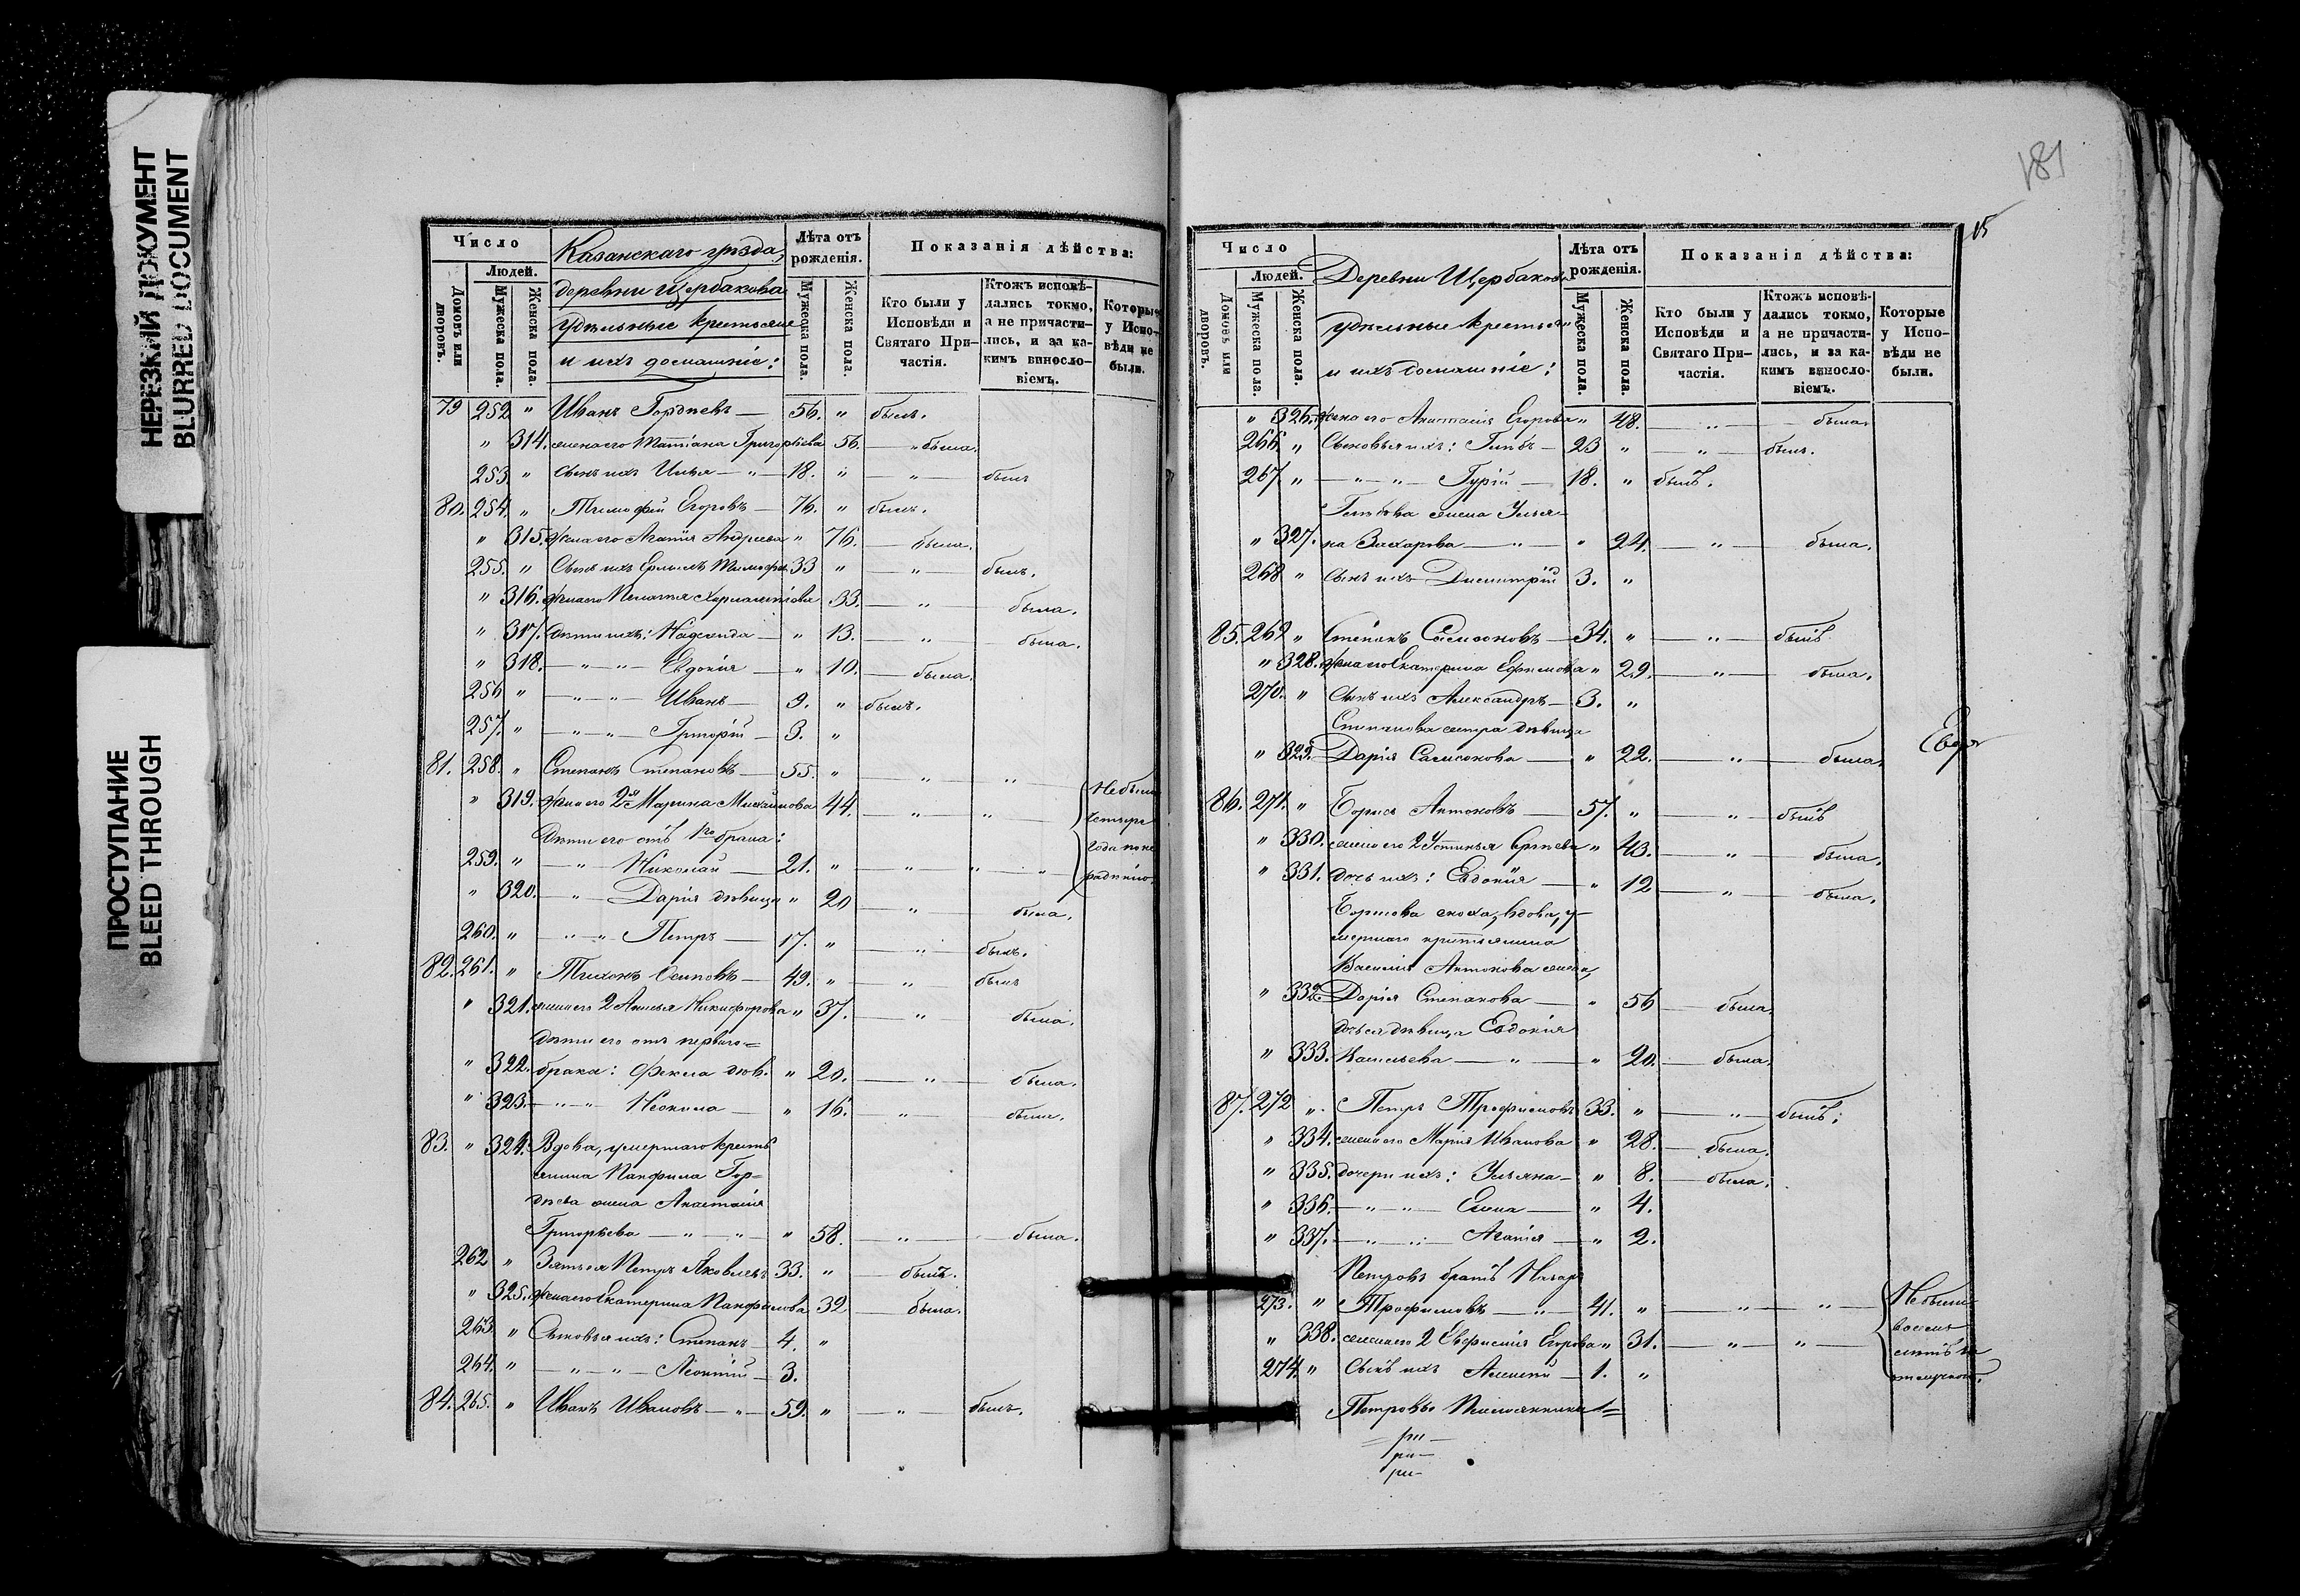 НЕРЕЗКИЙ ДОКУМЕНТ
BLURRED DOCUMENT
ПРОСТУПАНИЕ
BLEED THROUGH
Число
Людей.
Домовъ или дворовъ.
Мужеска пола.
Женска пола.
Казанскаго уѣзда,
деревни Щербакова
удѣльные крестьяне
и ихъ домашніе:
Лѣта отъ рожденія.
Мужеска пола.
Женска пола.
Показанія дѣйства:
Кто были у Исповѣди и Святаго Причастія.
Ктожъ исповѣдались токмо, а не причастились, и за какимъ винословіемъ.
Которые у Исповѣди не были.
79 252 " Иванъ Гордѣевъ — 56. " былъ.
" 314. жена его Татіана Григорьева 56. — " была.
253. " сынъ ихъ Илья — " — 18. " — " — былъ
80. 254. " Тимофей Егоровъ — 76. " былъ.
" 315. жена его Агапія Андреева " 76. — была.
255. " Сынъ ихъ Ермилъ Тимофе. 33 " — " — былъ.
" 316. жена его Пелагея 33. — " — была.
" 317. дѣти ихъ: Надежда — " 13. — " — была.
" 318. — " — " — Евдокія — " 10. — была.
256 " — " — " — Иванъ — 9. " былъ.
257. " — " — " — Григорій — 3. "
81. 258. " Степанъ Степановъ — 55. " — " — " —
" 319. жена его 2я Марина Михайлова 44. — " — " —
Небыли
четыре
года по не
радѣнію.
Дѣти его отъ 1го брака:
259. " — " — Николай — 21. " — " — " — " —
" 320. — " — Дарія дѣвица " 20 — " — была.
260. " — " — " — Петръ — 17. " — " — былъ.
82. 261. " Тихонъ Осиповъ — 49. " — " — былъ
" 321. жена его 2 Никифорова " 37. — " — была.
Дѣти его отъ перваго=
" 322. брака: Фекла дѣв. " 20. — " — была.
" 323. — " — " — " 16. — " — была.
83. " 324. Вдова, умершаго кресть
янина Панфила Гор=
дѣева жена Анастасія
Григорьева — " — " — " 58. — " — была.
262 " Зять ея Петръ Яковлевъ 33. " — былъ.
" 325. жена его Екатерина Панфилова 32 — была.
263 " Сыновья ихъ: Степанъ — 4. "
264. " — " — " — Леонтій — 3.
84. 265. " Иванъ Ивановъ — " — 59. " — " — былъ.
181
15
Число
Людей.
Домовъ или дворовъ.
Мужеска пола.
Женска пола.
Деревни Щербаков
удѣльные крестья
и ихъ домашніе:
Лѣта отъ рожденія.
Мужеска пола.
Женска пола.
Показанія дѣйства:
Кто были у Исповѣди и Святаго Причастія.
Ктожъ исповѣдались токмо, а не причастились, и за какимъ винословіемъ.
Которые у Исповѣди не были.
" 326. жена его Анастасія Егорова " 48. — " — была.
266. " Сыновья ихъ: Глѣбъ — 23 " — " — былъ.
267 " — " — " — Гурій — 18. " былъ.
Глѣбова жена Улья-
" 327. на Захарова — " — " 24. — " — была.
268 " сынъ ихъ Димитрій 3. "
85. 269 " Степанъ Самсоновъ — 34. " — " — былъ
" 328. жена его Екатерина Ефимова " 29. — " — была.
270. " сынъ ихъ Александръ — 3. "
Степанова сестра дѣвица
" 329. Дарія Самсонова — " 22. — " — была.
86. 271. " Борисъ Антоновъ — 57. " — " — былъ
" 330. жена его 2 Устинья Сергѣева " 43. — " — была.
" 331. дочь ихъ: Евдокія — " 12 — " — была.
Борисова сноха, вдова, у-
мершаго крестьянина
Василія Антонова жена,
" 332. Дарія Степанова — " 56 — была.
дочь ея дѣвица Евдокія
" 333. Васильева — " — " 20. — была.
87. 272 " Петръ Трофимовъ 33. " — " — былъ:
" 334. жена его Марія Иванова " 28. — была.
" 335. дочери ихъ: Ульяна — " 8. — была.
" 336. — " — " — Елена — " 4.
" 337. — " — " — Агапія — " 2.
Петровъ братъ Назаръ
273. " Трофимовъ — " — 41. " — " — " —
" 338. жена его 2 Евфимія Егорова " 31. — " — " —
274. " Сынъ ихъ Алексѣй — 1. "
Небыли
восемь
лѣтъ за
отлучкой.